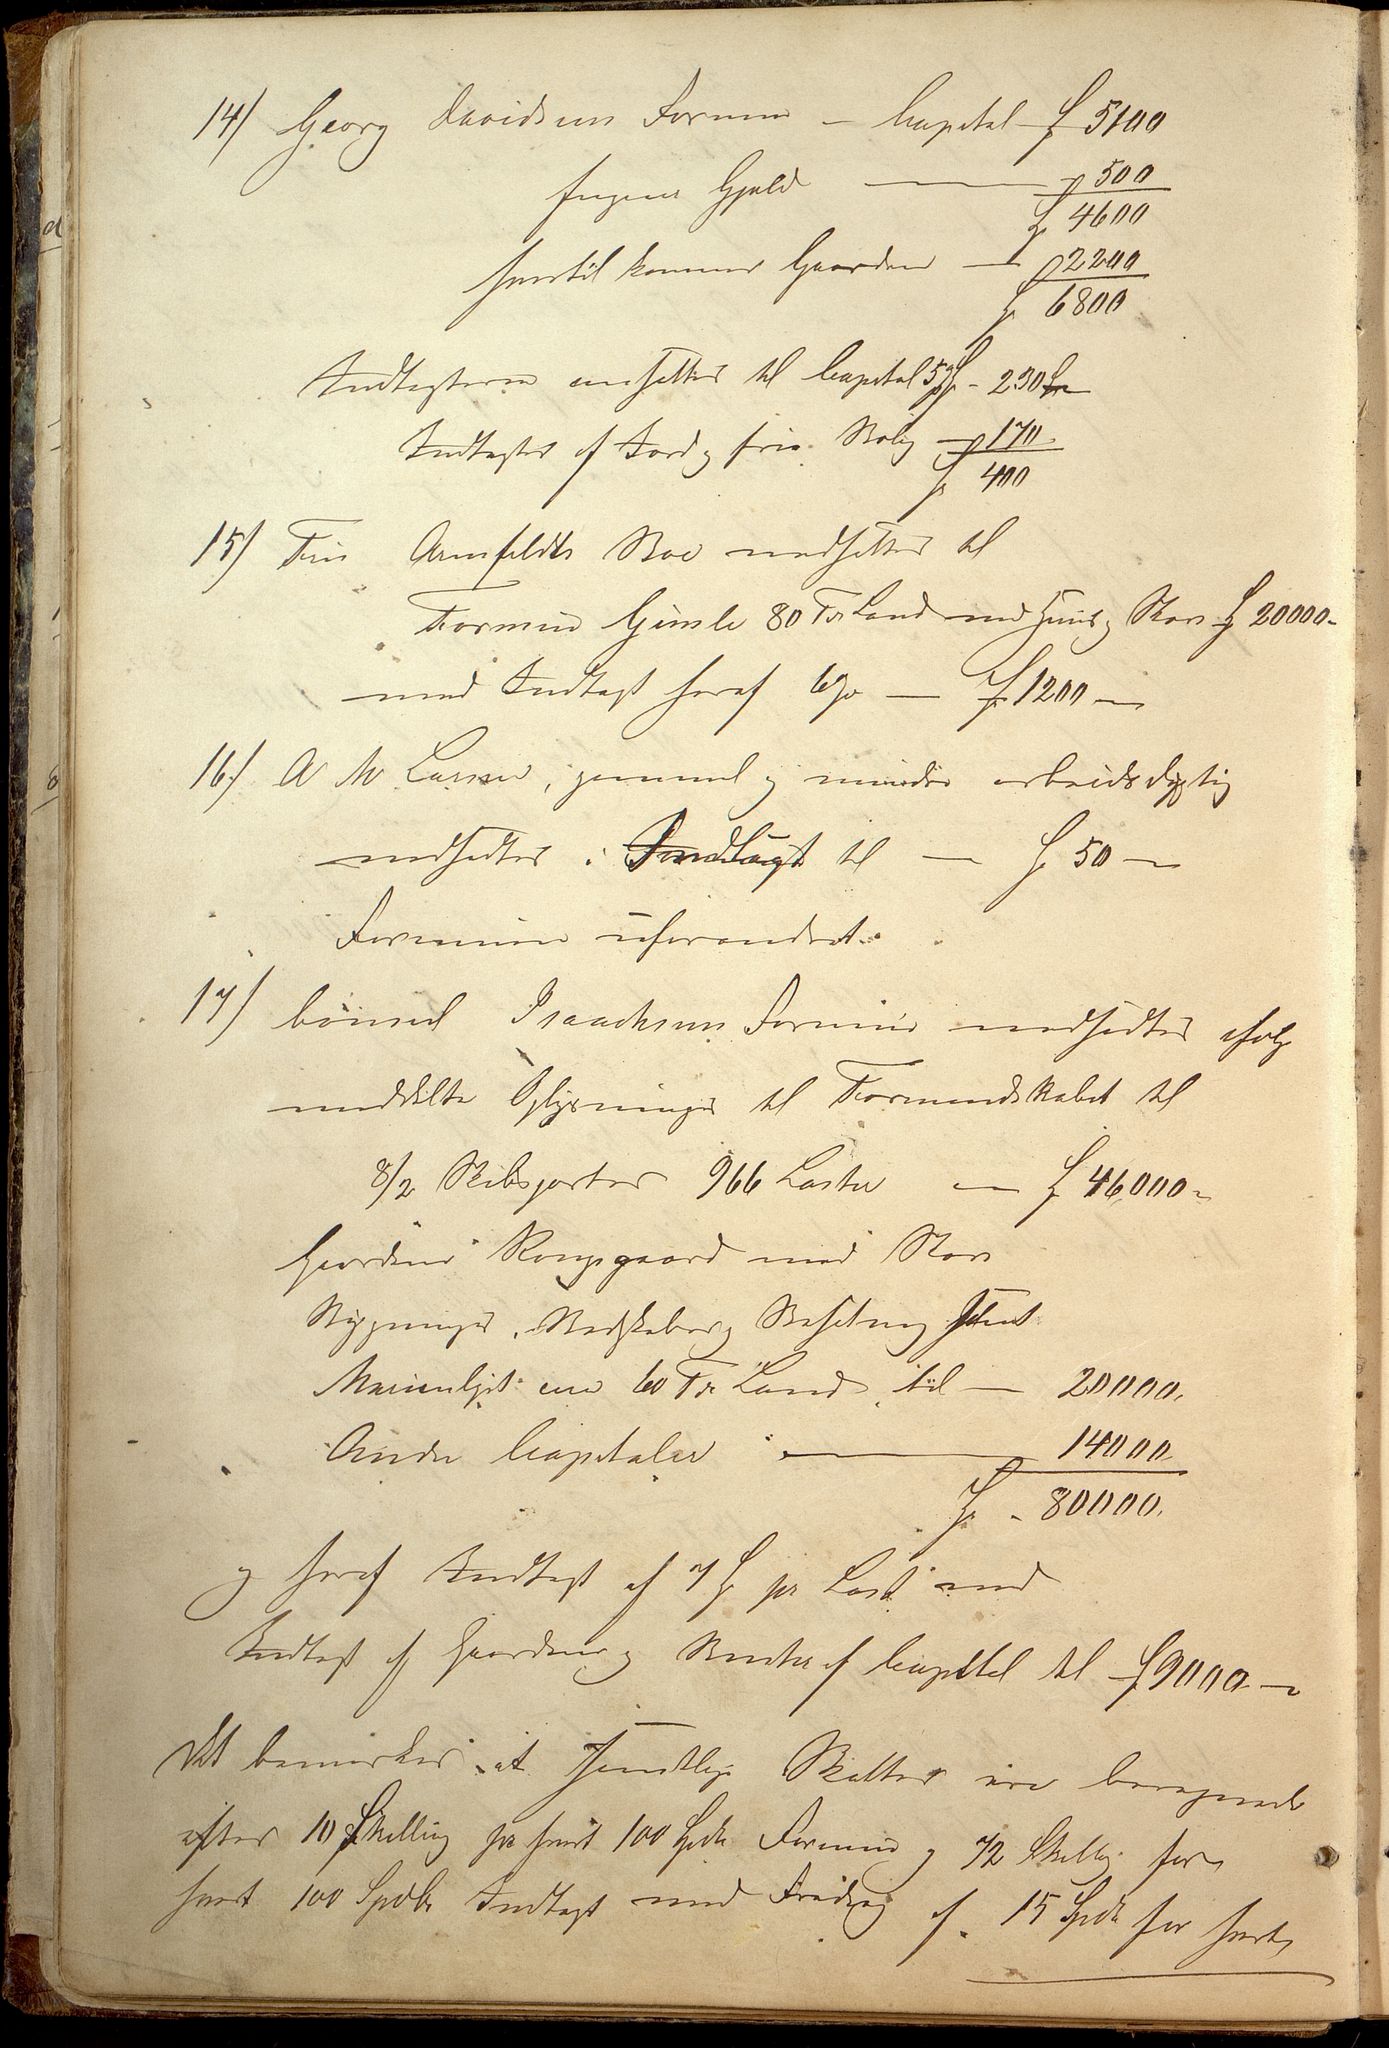 14/ Georg Davidsens Formue – Capital – 5100
Ingen Gjeld — 500
4600
hvortil kommer Gaarden — 2200
6800
Indtægterne ansættes til Capital 5% - 230
Indtægter af Jord og frie Bolig — 170
400
15/ Frue Arenfeldts Boe nedsættes til
Formue Gimle 80 Td Land med Huus og Skov 20000 -
med Indtægt heraf 6% — 1200 -
16/ A M Larsen, gammel og mindre arbeidsdygtig
nedsættes i Indtægt til — 50 -
Formuen uforandret.
17/ Consul Isaachsens Formue nedsættes ifølge
meddelte Oplysninger til Formandskabet til
8/2 Skibsparter 966 Læster — 46000 -
Gaarden Kongsgaard med Skov
Bygninger, Redskaber og Besætning samt
Marienlyst 60 Td Land, til — 20000.
Andre Capitaler — 14000.
80000.
og heraf Indtægt af 7 pr Læst med
Indtægt af Gaardene og Renter af Capital til 9000 -
Det bemærkes at samtlige Skatter ere beregnede
efter 10 Skilling pr hvert 100 Spdlr Formue og 72 Skilling for
hvert 100 Spdlr Indtægt med Fradrag af 15 Spdlr for hvert